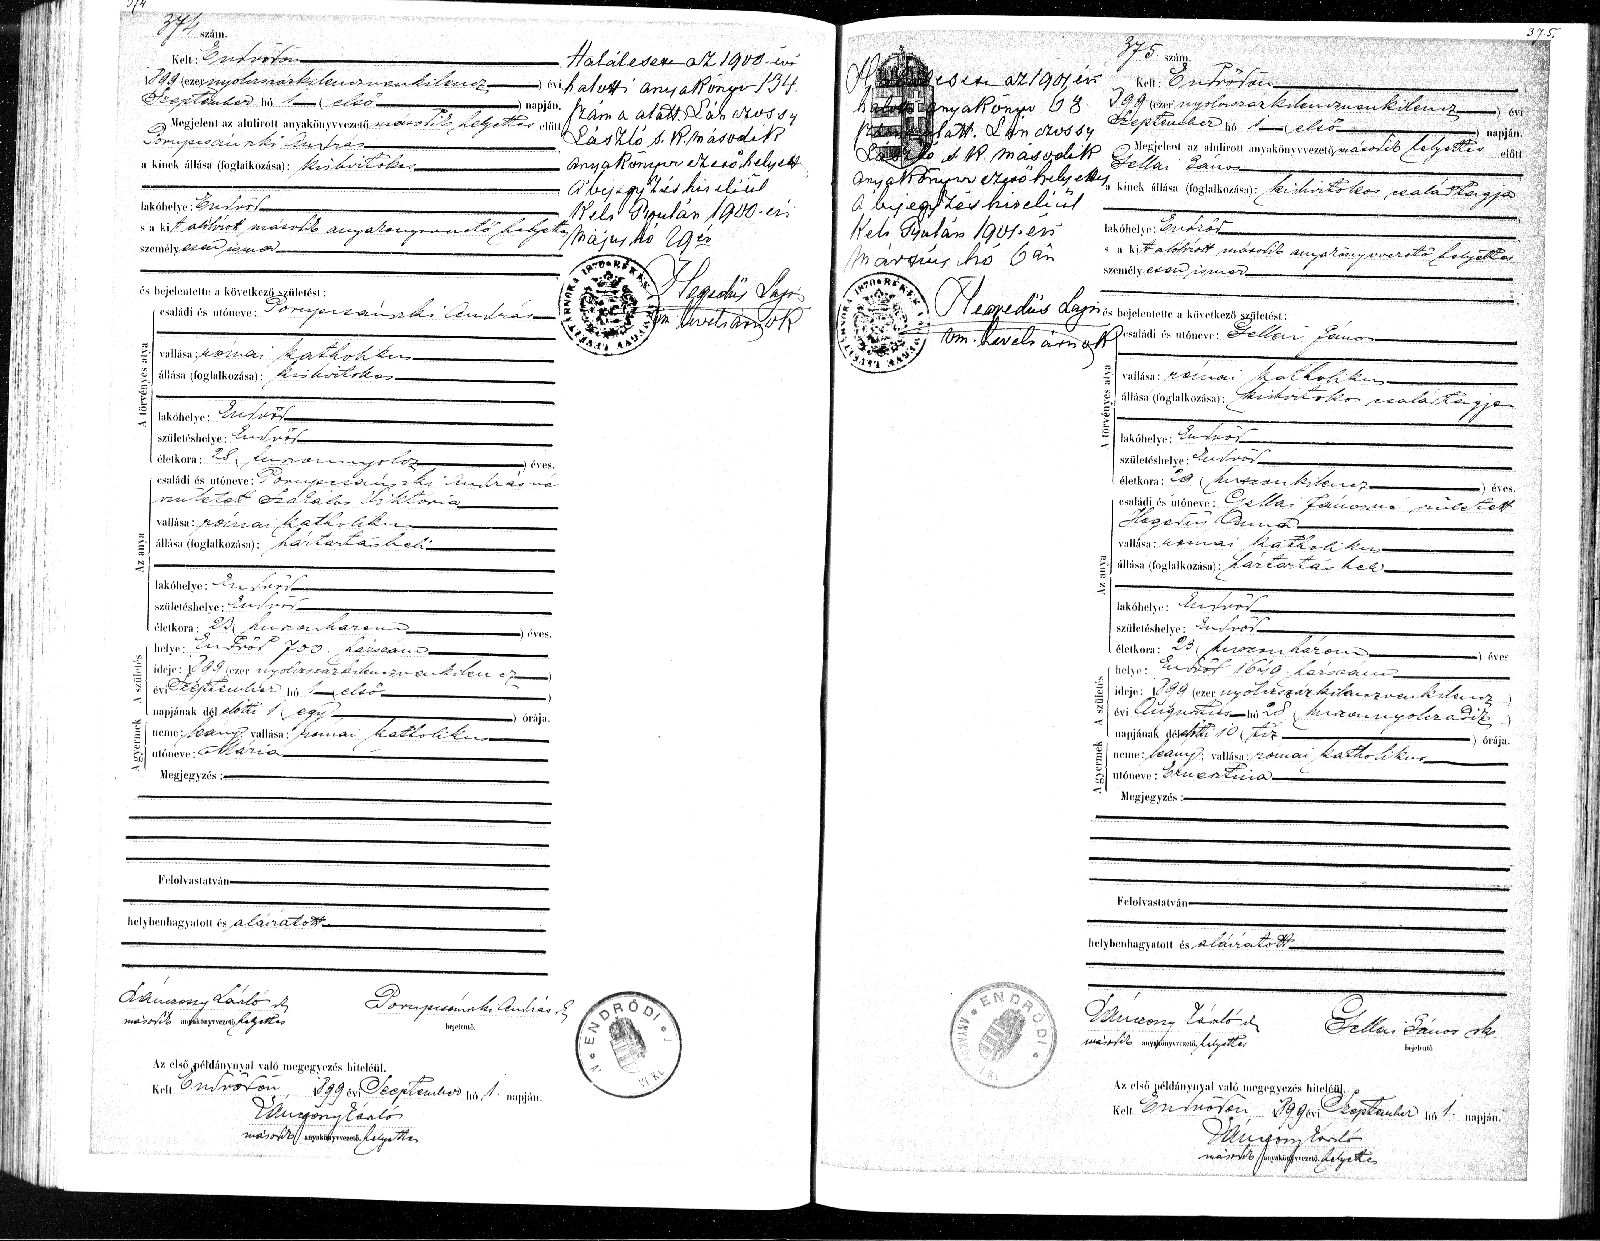 374
374 szám.
Kelt: Endrődön
899 (ezer nyolcszázkilenczvenkilencz) évi
Szeptember hó 1 (első) napján.
Megjelent az alulírott anyakönyvvezető második helyettes előtt
András
a kinek állása (foglalkozása): kisbirtokos
lakóhelye: Endrőd
s a kit alólírt második anyakönyvvezető helyettes
személyesen ismer
és bejelentette a következő születést:
A törvényes atya
családi és utóneve: András
vallása: római katholikus
állása (foglalkozása): kisbirtokos
lakóhelye: Endrőd
születéshelye: Endrőd
életkora: 28 (huszonnyolcz) éves.
Az anya
családi és utóneve: Andrásné
született Viktoria
vallása: római katholikus
állása (foglalkozása): háztartásbeli
lakóhelye: Endrőd
születéshelye: Endrőd
életkora: 23 (huszonhárom) éves.
A születés
helye: Endrőd 700. házszám
ideje: 899 (ezer nyolcszázkilenczvenkilencz)
évi Szeptember hó 1 (első)
napjának délelőtti 1 (egy) órája.
A gyermek
neme: leány; vallása: római katholikus
utóneve: Mária
Megjegyzés:
Felolvastatván
helybenhagyatott és aláíratott
László
második anyakönyvvezető helyettes
András
bejelentő.
Az első példánynyal való megegyezés hiteléül.
Kelt Endrődön 899 évi Szeptember hó 1. napján.
László
második anyakönyvvezető helyettes
Halálesete az 1900. évi
halotti anyakönyv 134
száma alatt. Lánczossy
László s.k. második
anyakönyvvezető helyett.
A bejegyzés hiteléül
Kelt Gyulán 1900. évi
május hó 29 én
Hegedüs Lajos
vm. levéltárnok
BÉKÉS VÁRMEGYE LEVÉLTÁRNOKA 1870
ENDRŐDI
375
375 szám.
Kelt: Endrődön
899 (ezer nyolcszázkilenczvenkilencz) évi
Szeptember hó 1 (első) napján.
Megjelent az alulírott anyakönyvvezető második helyettes előtt
Gellai János
a kinek állása (foglalkozása): kisbirtokos családtagja
lakóhelye: Endrőd
s a kit alólírott második anyakönyvvezető helyettes
személyesen ismer
és bejelentette a következő születést:
A törvényes atya
családi és utóneve: Gellai János
vallása: római katholikus
állása (foglalkozása): kisbirtokos családtagja
lakóhelye: Endrőd
születéshelye: Endrőd
életkora: 29 (huszonkilencz) éves.
Az anya
családi és utóneve: Gellai Jánosné született
Hegedüs Anna
vallása: római katholikus
állása (foglalkozása): háztartásbeli
lakóhelye: Endrőd
születéshelye: Endrőd
életkora: 23 (huszonhárom) éves
A születés
helye: Endrőd házszám
ideje: 899 (ezer nyolcszázkilenczvenkilencz)
évi Augusztus hó 28 (huszonnyolczadik)
napjának délelőtti 10 (tíz) órája.
A gyermek
neme: leány; vallása: római katholikus
utóneve: Ernesztina
Megjegyzés:
Felolvastatván
helybenhagyatott és aláíratott
László
második anyakönyvvezető helyettes
Gellai János sk.
bejelentő
Az első példánynyal való megegyezés hiteléül.
Kelt Endrődön 899 évi Szeptember hó 1. napján.
László
második anyakönyvvezető helyettes
Halálesete az 1901. évi
halotti anyakönyv 63
száma alatt. Lánczossy
László s.k. második
anyakönyvvezető helyettes
A bejegyzés hiteléül
Kelt Gyulán 1901. évi
Március hó 6 án
Hegedüs Lajos
vm. levéltárnok
BÉKÉS VÁRMEGYE LEVÉLTÁRNOKA 1870
ENDRŐDI